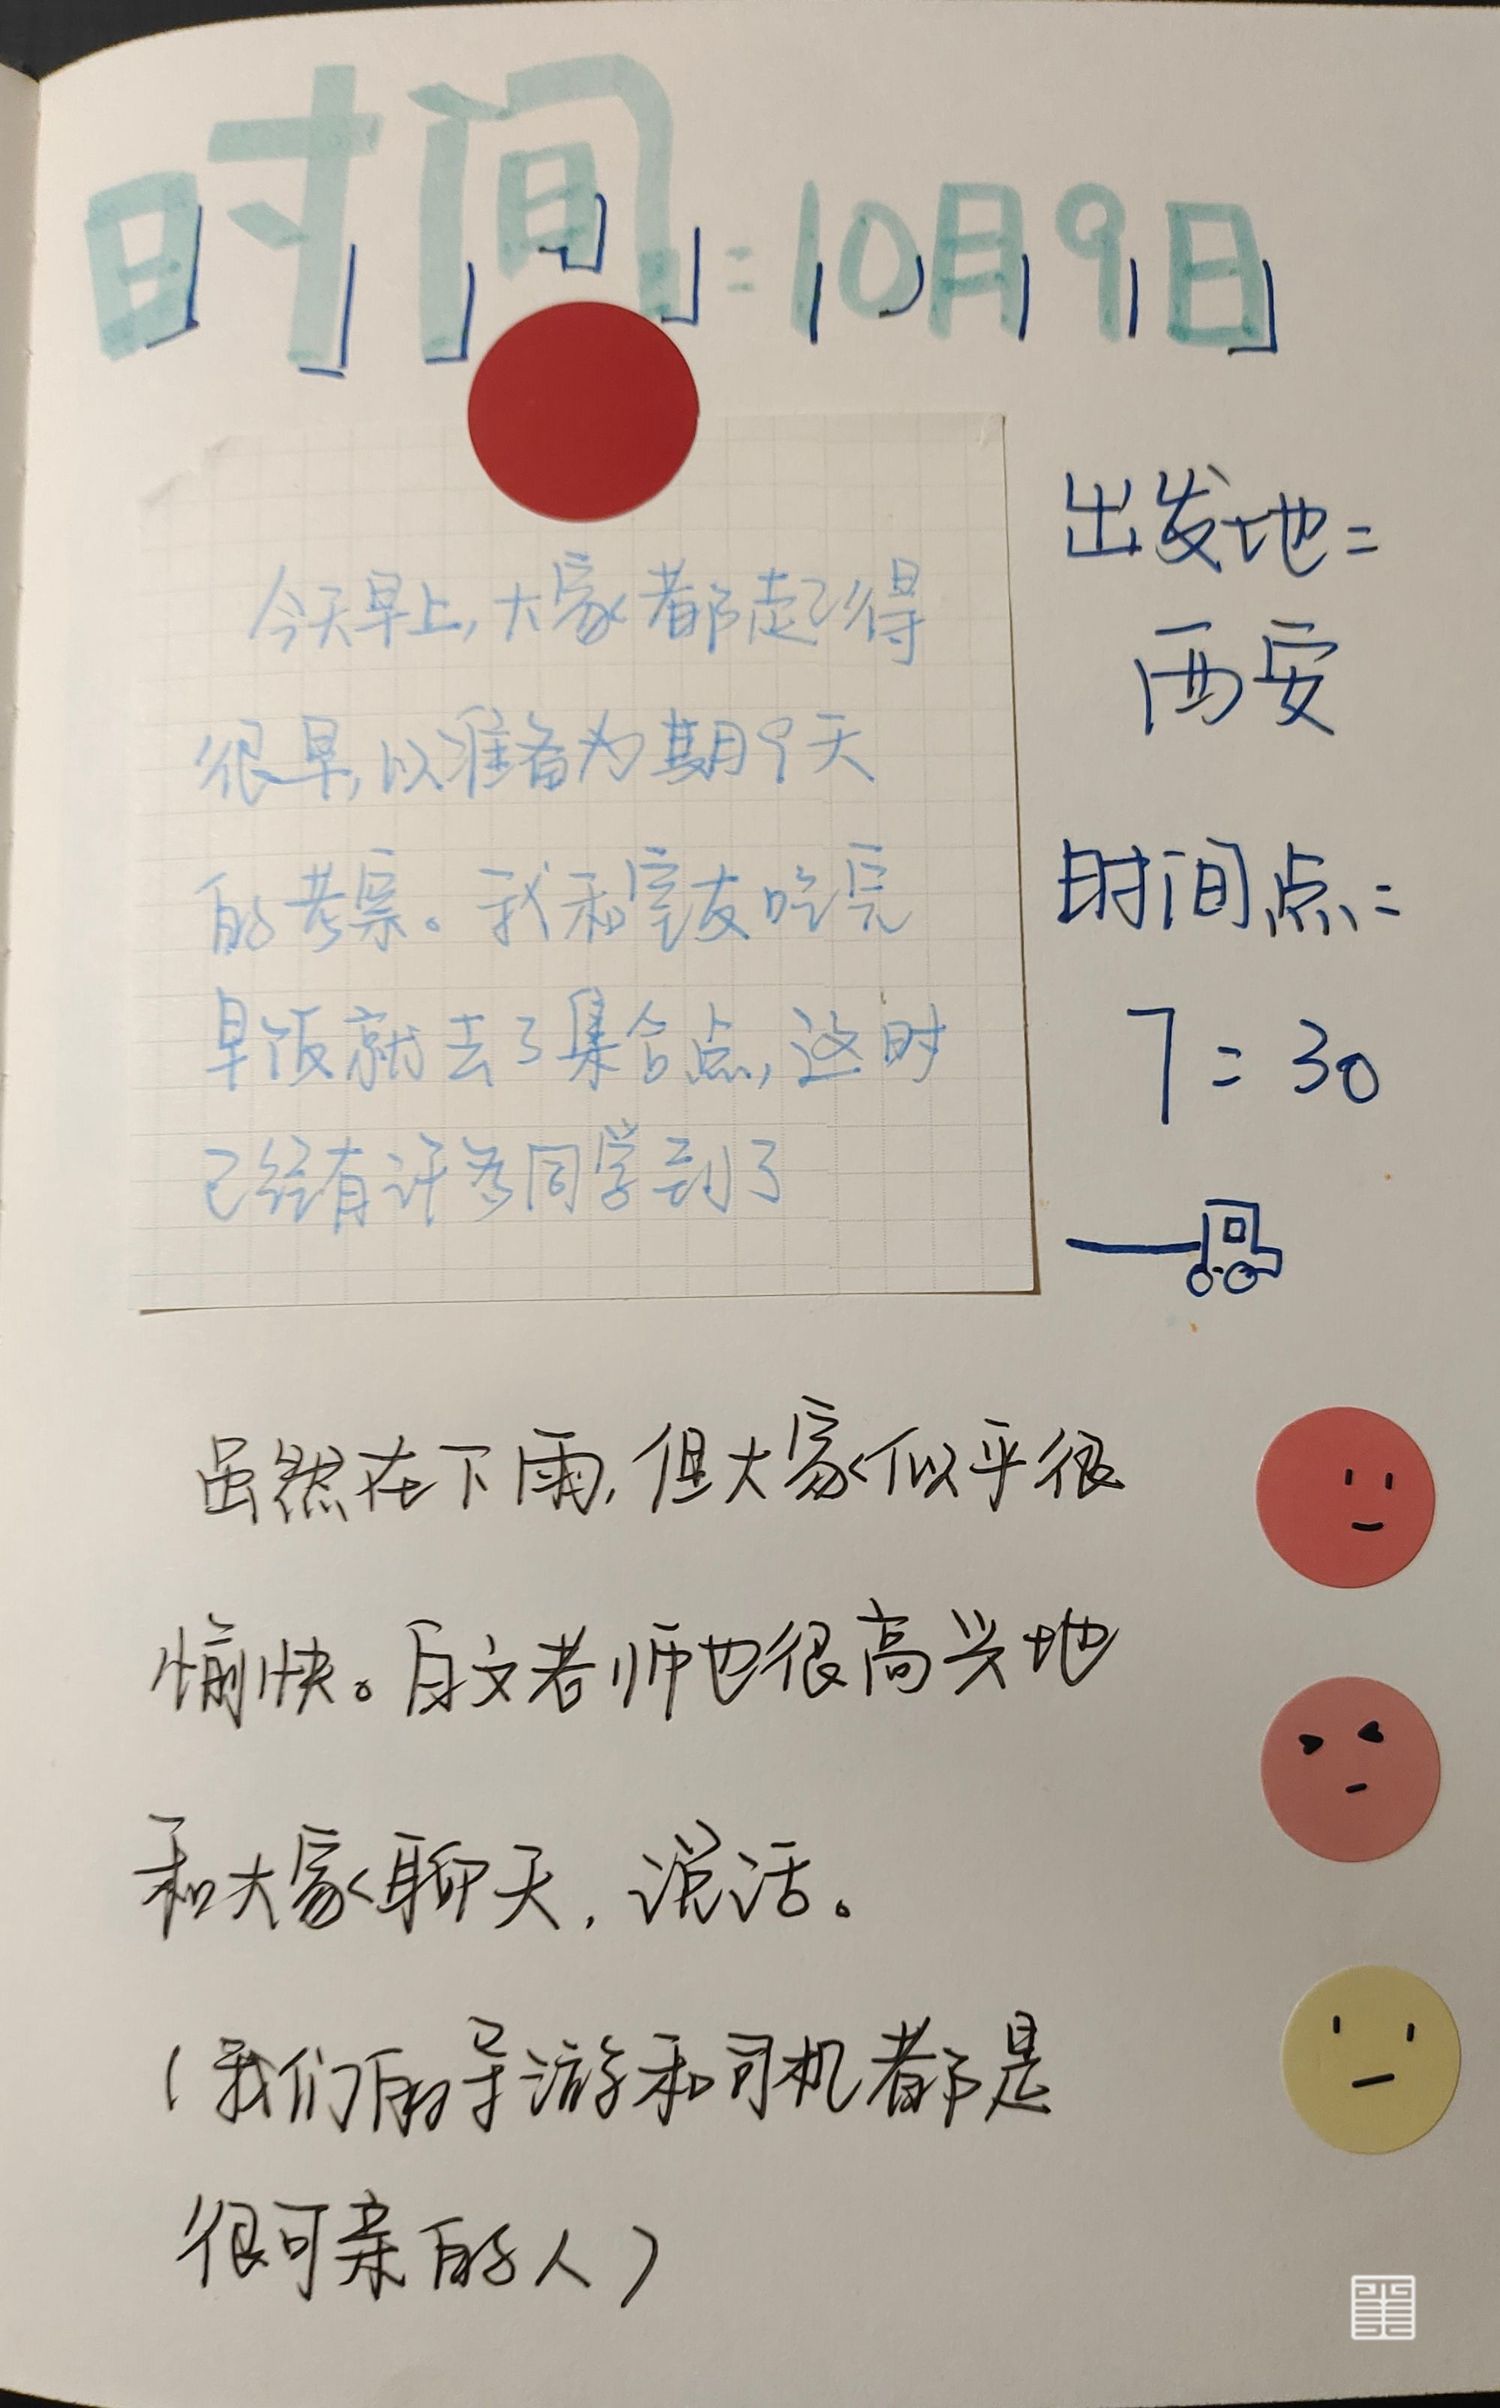 时间:10月9日
今天早上,大家都起得
很早,以准备为期9天
的考察。我和室友吃完
早饭就去了集合点,这时
已经有许多同学到了
出发地:
西安
时间点:
7:30
虽然在下雨,但大家似乎很
愉快。自文老师也很高兴地
和大家聊天,说话。
(我们的导游和司机都是
很可亲的人)